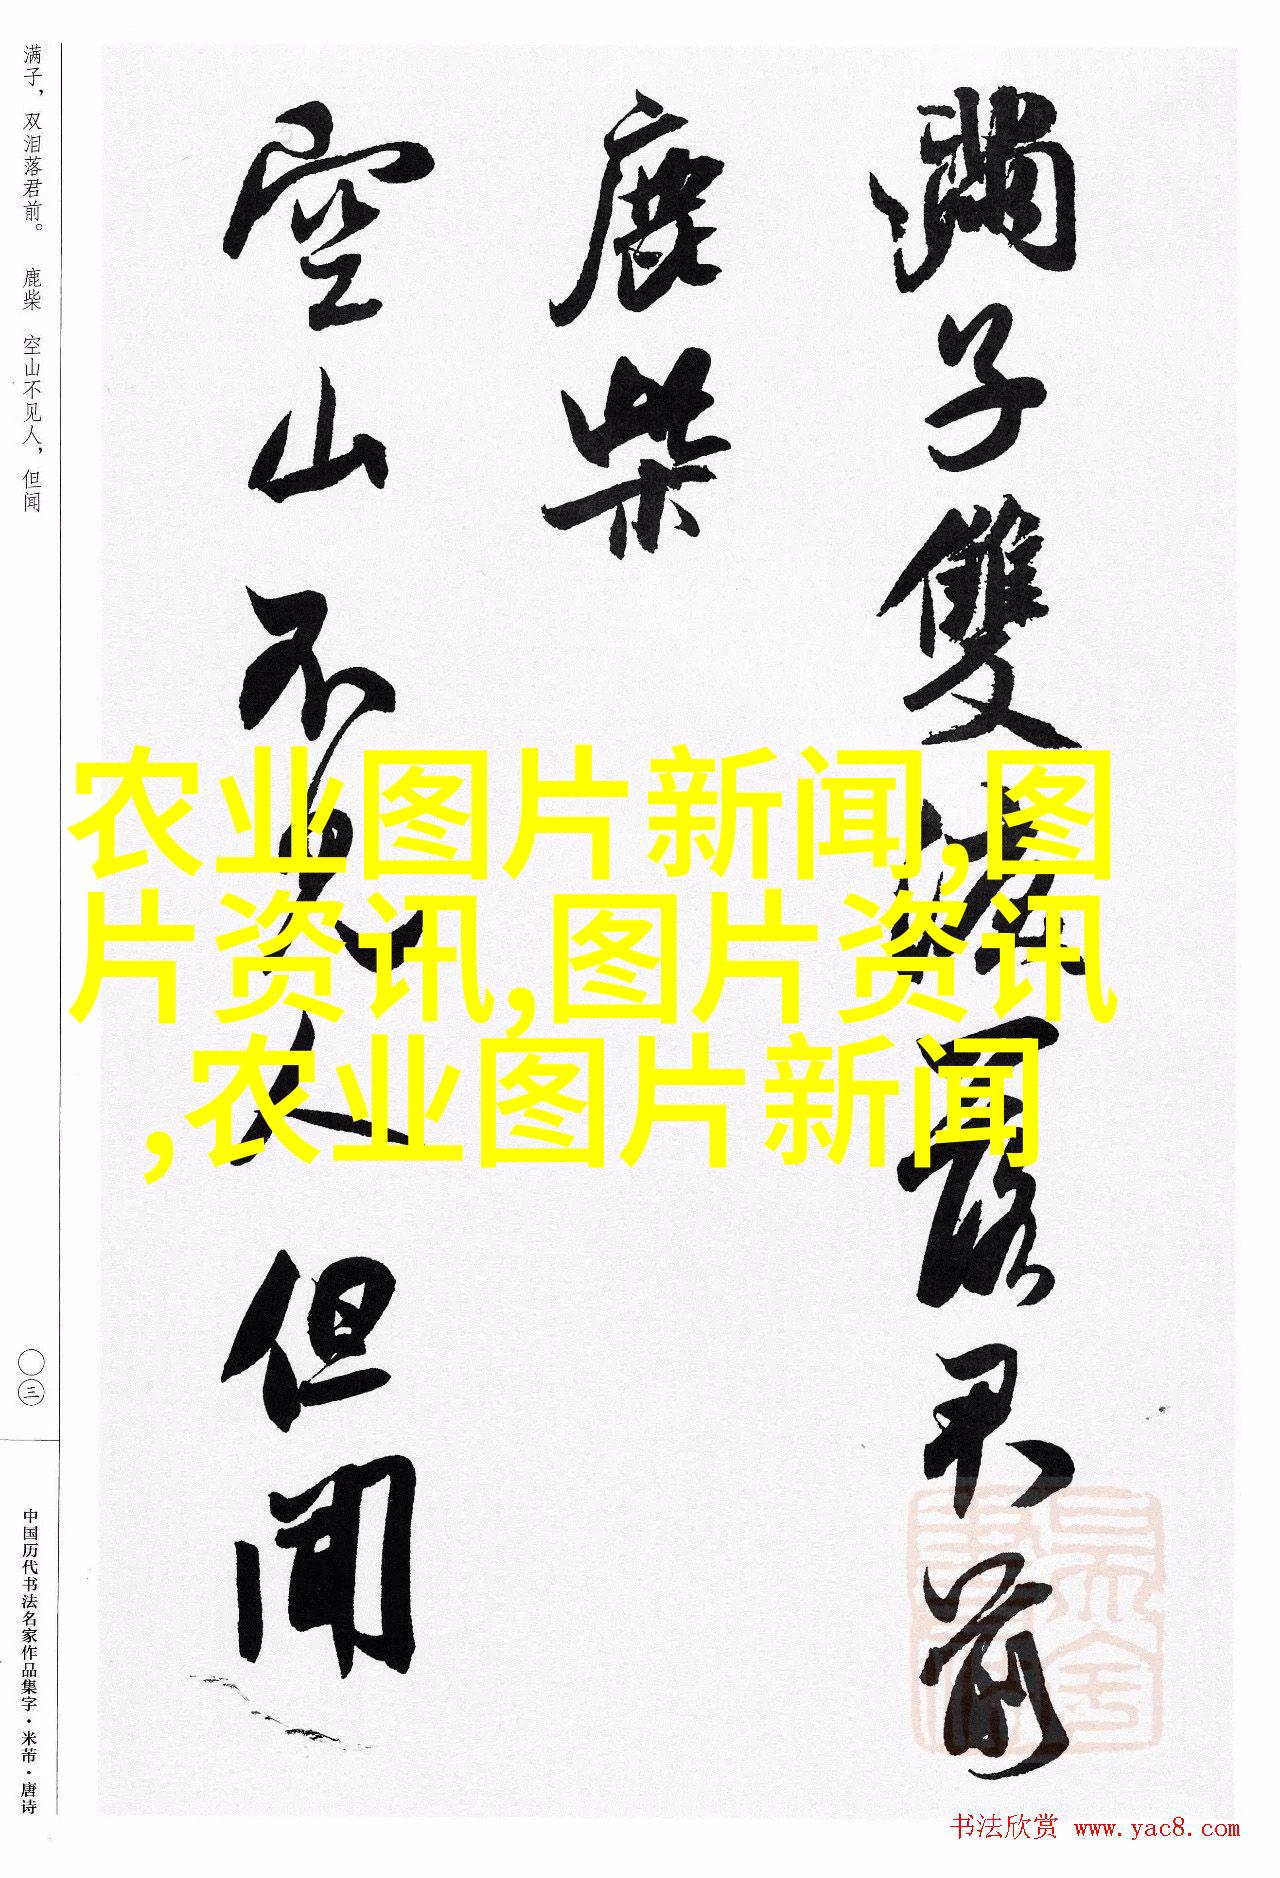 满子，双泪落君前。 鹿柴 空山不见人，但闻
〇三
中国历代书法名家作品集字·米芾·唐诗
滿子雙淚落君前
鹿柴
空山不見人但聞
农业图片新闻,图
片资讯,图片资讯
,农业图片新闻
书法欣赏 www.yac8.com